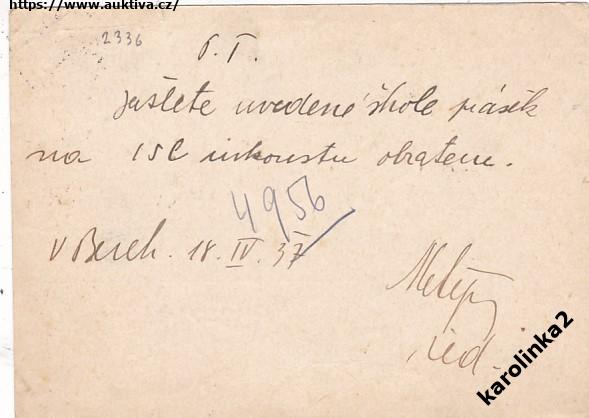 https://www.auktiva.cz/
2336
P. T.
zašlete uvedené škole prášek
na 15 l inkoustu obratem.
4956
V Berch. 18. IV. 37
řed.
karolinka2